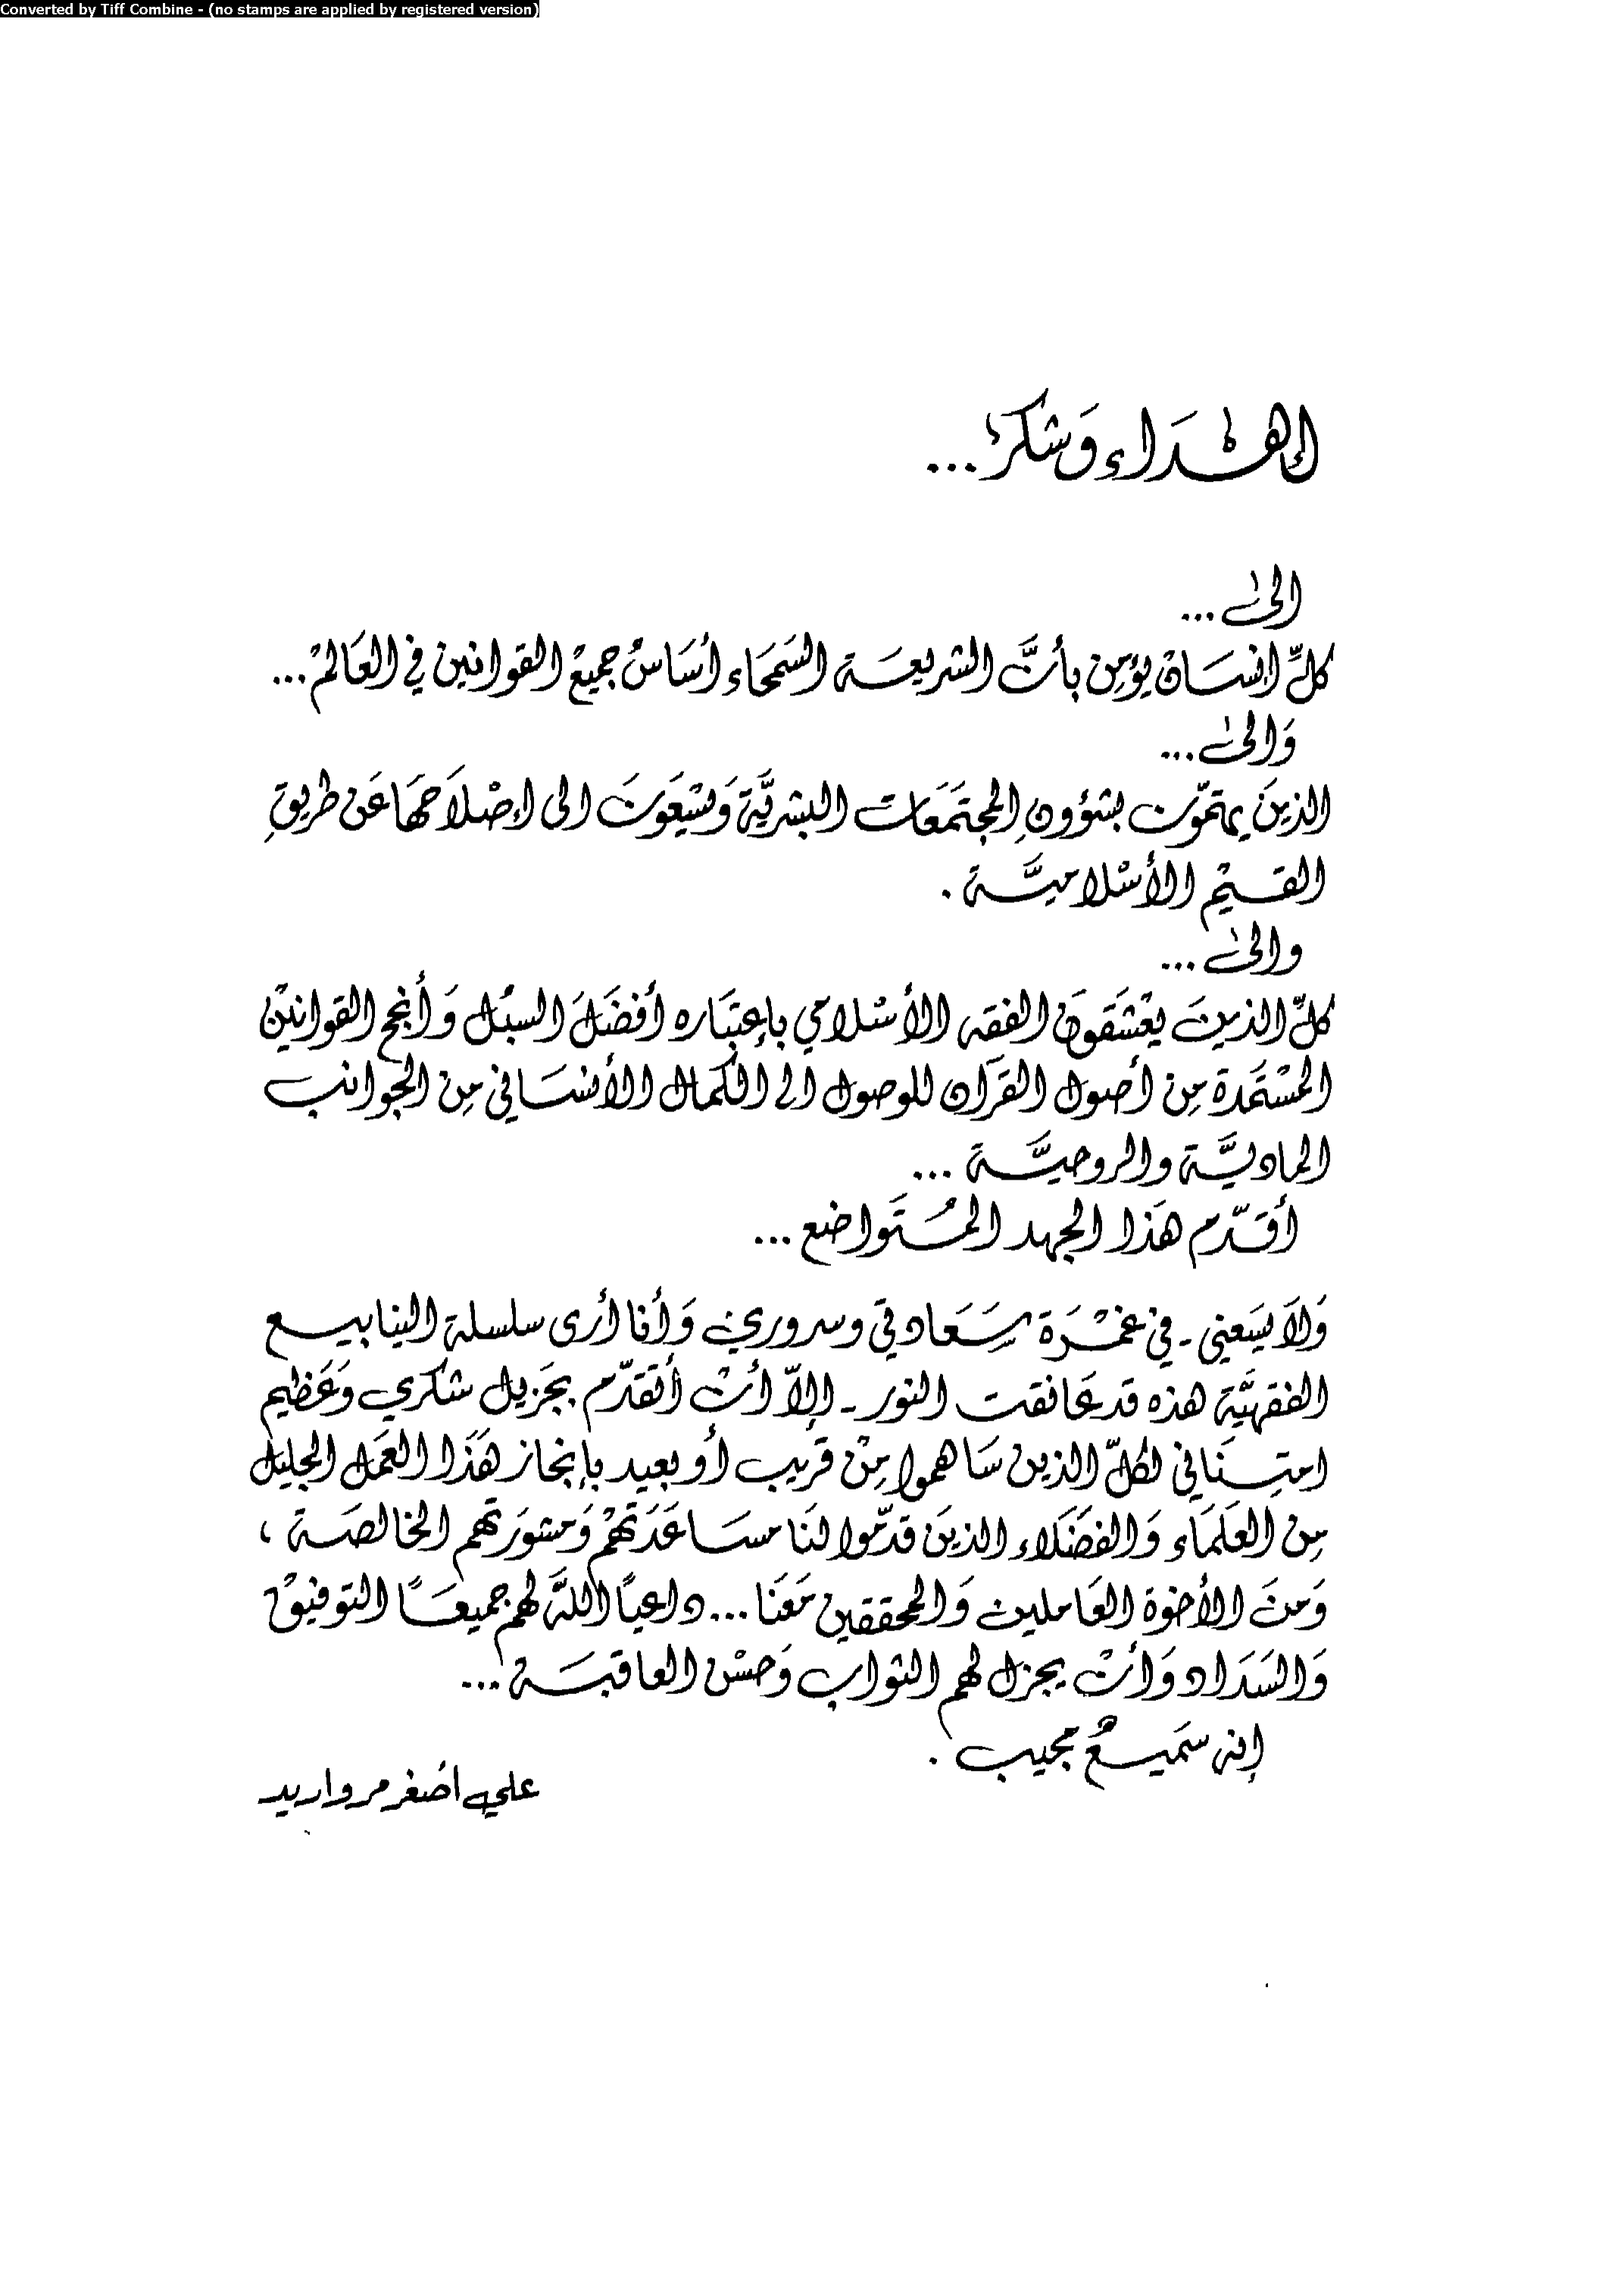 Converted by Tiff Combine - (no stamps are applied by registered version)
إهْدَاء وَشكرٌ...
الىٰ...
كلّ انسَان يؤمِن بأنَّ الشريعَة السَمحَاء أسَاسُ جميعْ القوانين في العَالمْ...
وَالىٰ...
الذينَ يهتمّون بشؤونِ المجتمَعَات البشريَّة وَيسْعَونَ الى إصْلاَحهَا عَن طريقِ
القيمْ الأسْلاميَّة .
والىٰ...
كلّ الذينَ يعْشَقونَ الفقه الأسْلامي بإعتبَاره أفضَلَ السبُل وَأنجح القوانينْ
المسْتمَدة مِن أصول القرآن للوصول الى الكمال الأنسَاني مِن الجوانب
الماديَّة والروحيَّة ...
أقدّم هَذا الجهد المُتَواضع ...
وَلاَ يسَعني - في غمْرَة سَعَادتي وسروري وَأنا أرى سلسلة الينابيع
الفقهيَّة هذه قد عَانقت النور - إلاّ أنْ أتقدّم بجَزيل شكري وَعَظيم
امتِنَاني لكلّ الذين سَاهموا مِنْ قريب أو بعيد بإنجاز هَذَا العَمَل الجليل
مِن العلَمَاء وَالفضَلاء الذينَ قدّموا لنَا مسَاعَدَتهمْ وَمشورَتهم الخالصَة ،
وَمنَ الأخوة العَاملين وَالمحققين مَعَنا ... داعياً اللهَ لهم جميعَاً التوفيقْ
وَالسَدَاد وَأنْ يجزل لهم الثواب وَحسْن العاقبَة ...
إنه سَميعٌ مجيب .
علي أصْغر مرواريد